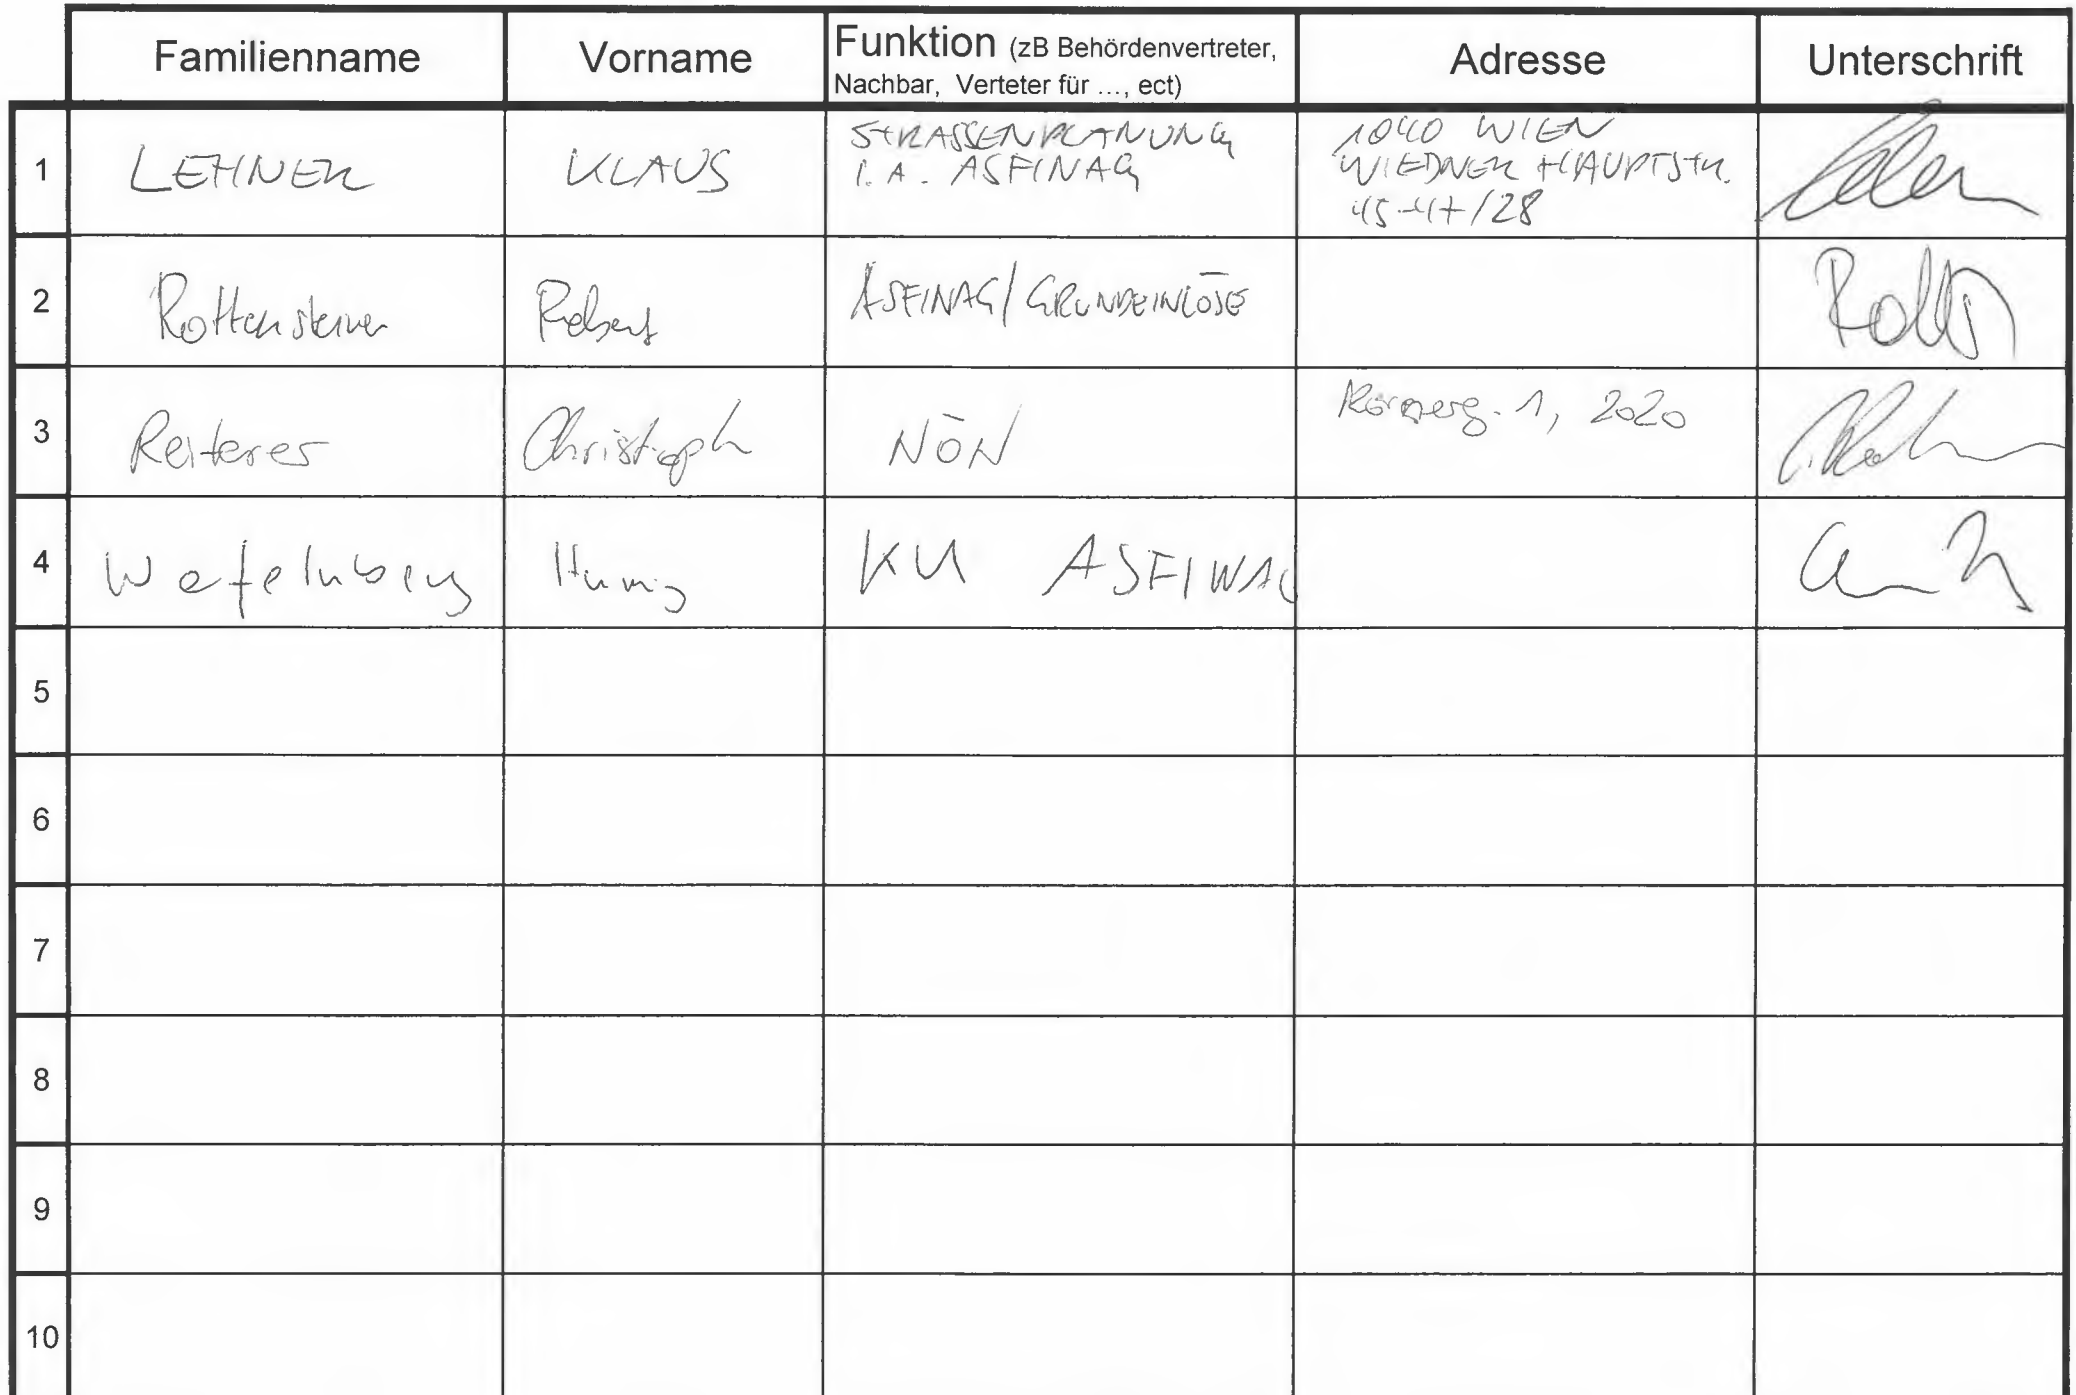 Familienname Vorname Funktion (zB Behördenvertreter, Nachbar, Verteter für ..., ect) Adresse Unterschrift
1 LEHNER KLAUS STRASSENPLANUNG
I.A. ASFINAG
1040 WIEN
WIEDNER HAUPTSTR.
45-47/28
2 Rottensteiner Robert ASFINAG/GRUNDEINLÖSE
3 Reiterer Christoph NÖN Körnerg. 1, 2020
4 KU ASFINAG
5
6
7
8
9
10